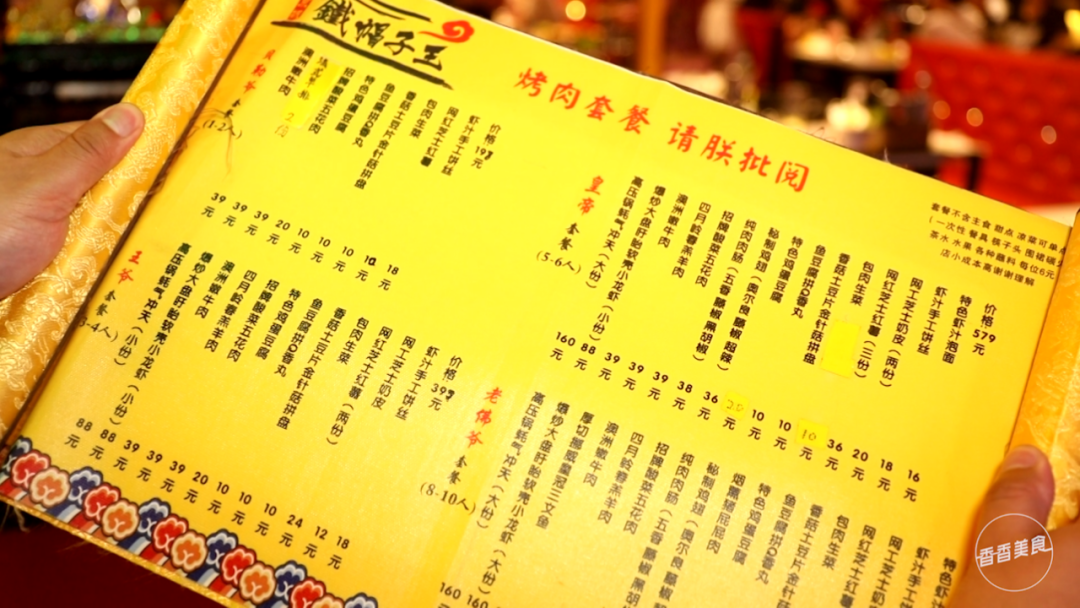 鐵帽子王
烤肉套餐 请朕批阅
套餐(1-2人)
澳洲嫩牛肉
招牌酸菜五花肉
特色鸡蛋豆腐
鱼豆腐拼Q香丸
香菇土豆片金针菇拼盘
包肉生菜
网红芝士红薯
虾汁手工饼丝
价格
元
39元
39元
39元
20元
10元
10元
10元
18元
王爷 套餐
高压锅蚝气冲天(小份)
爆炒大盘盱眙软壳小龙虾(小份)
澳洲嫩牛肉
四月龄春羔羊肉
招牌酸菜五花肉
特色鸡蛋豆腐
鱼豆腐拼Q香丸
香菇土豆片金针菇拼盘
包肉生菜
网红芝士红薯(两份)
网工芝士奶皮
虾汁手工饼丝
价格
元
88元
88元
39元
39元
39元
20元
10元
10元
10元
24元
12元
18元
皇帝 套餐(5-6人)
高压锅蚝气冲天(大份)
爆炒大盘盱眙软壳小龙虾(小份)
澳洲嫩牛肉
四月龄春羔羊肉
招牌酸菜五花肉
纯肉肉肠(五香 藤椒 黑胡椒)
秘制鸡翅(奥尔良 藤椒 甜辣)
特色鸡蛋豆腐
鱼豆腐拼Q香丸
香菇土豆片金针菇拼盘
包肉生菜
网红芝士红薯(三份)
网工芝士奶皮(两份)
虾汁手工饼丝
特色虾汁泡面
价格 579元
160元
88元
39元
39元
39元
38元
36元
10元
36元
20元
18元
16元
老佛爷 套餐(8-10人)
高压锅蚝气冲天(大份)
爆炒大盘盱眙软壳小龙虾(大份)
厚切挪威皇冠三文鱼
澳洲嫩牛肉
四月龄春羔羊肉
招牌酸菜五花肉
纯肉肉肠(五香 藤椒 黑胡
秘制鸡翅(奥尔良 藤
烟熏猪屁屁肉
特色鸡蛋豆腐
鱼豆腐拼Q香丸
香菇土豆片金针
包肉生菜
网红芝士
网工芝士
虾汁手
特
160
160
套餐不含主食 甜点 凉菜可单点
(一次性 餐具 筷子头 围裙
茶水 水果 各种蘸料 每位6元
店小成本高谢谢理解
香香美食